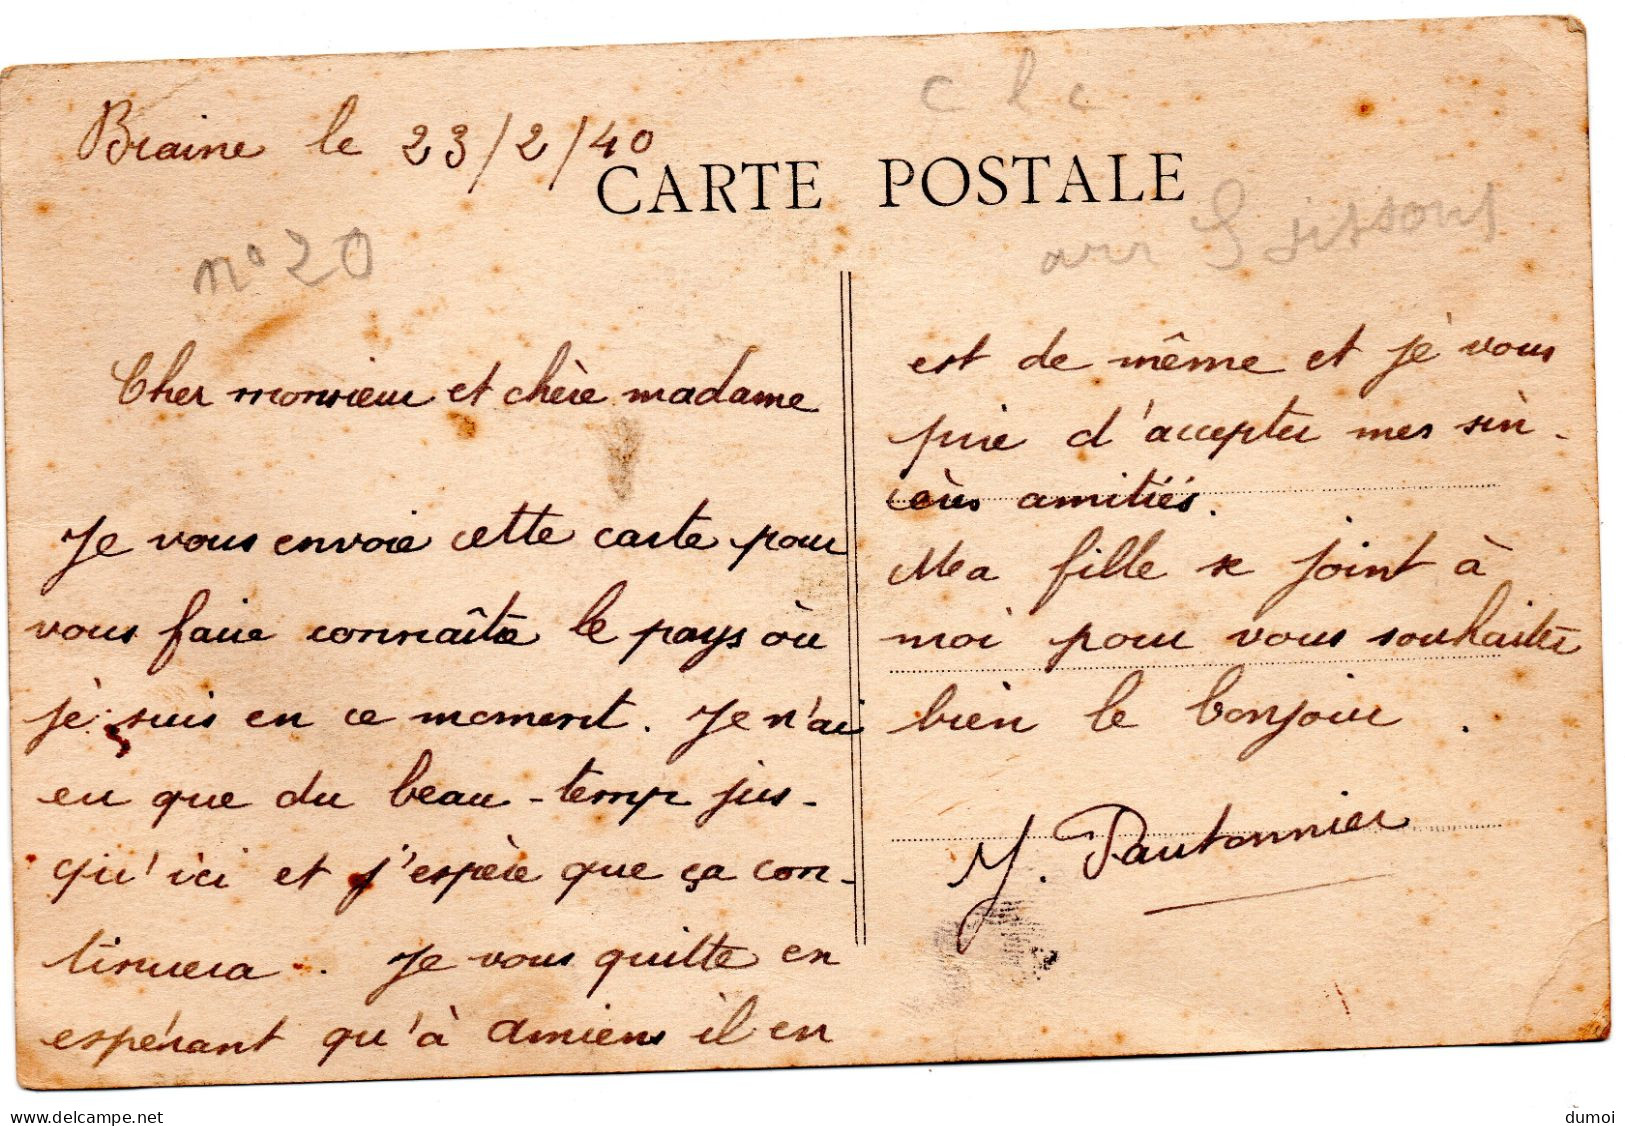 Braine le 23/2/40
CARTE POSTALE
n° 20
arr
Cher monsieur et chère madame
Je vous envoie cette carte pour
vous faire connaître le pays où
je suis en ce moment. Je n'ai
eu que du beau-temps jus-
qu'ici et j'espère que ça con-
tinuera. Je vous quitte en
espérant qu'à Amiens il en
est de même et je vous
prie d'accepter mes sin-
cères amitiés.
Ma fille se joint à
moi pour vous souhaiter
bien le bonjour.
J. Pautonnier
delcampe.net
dumoi